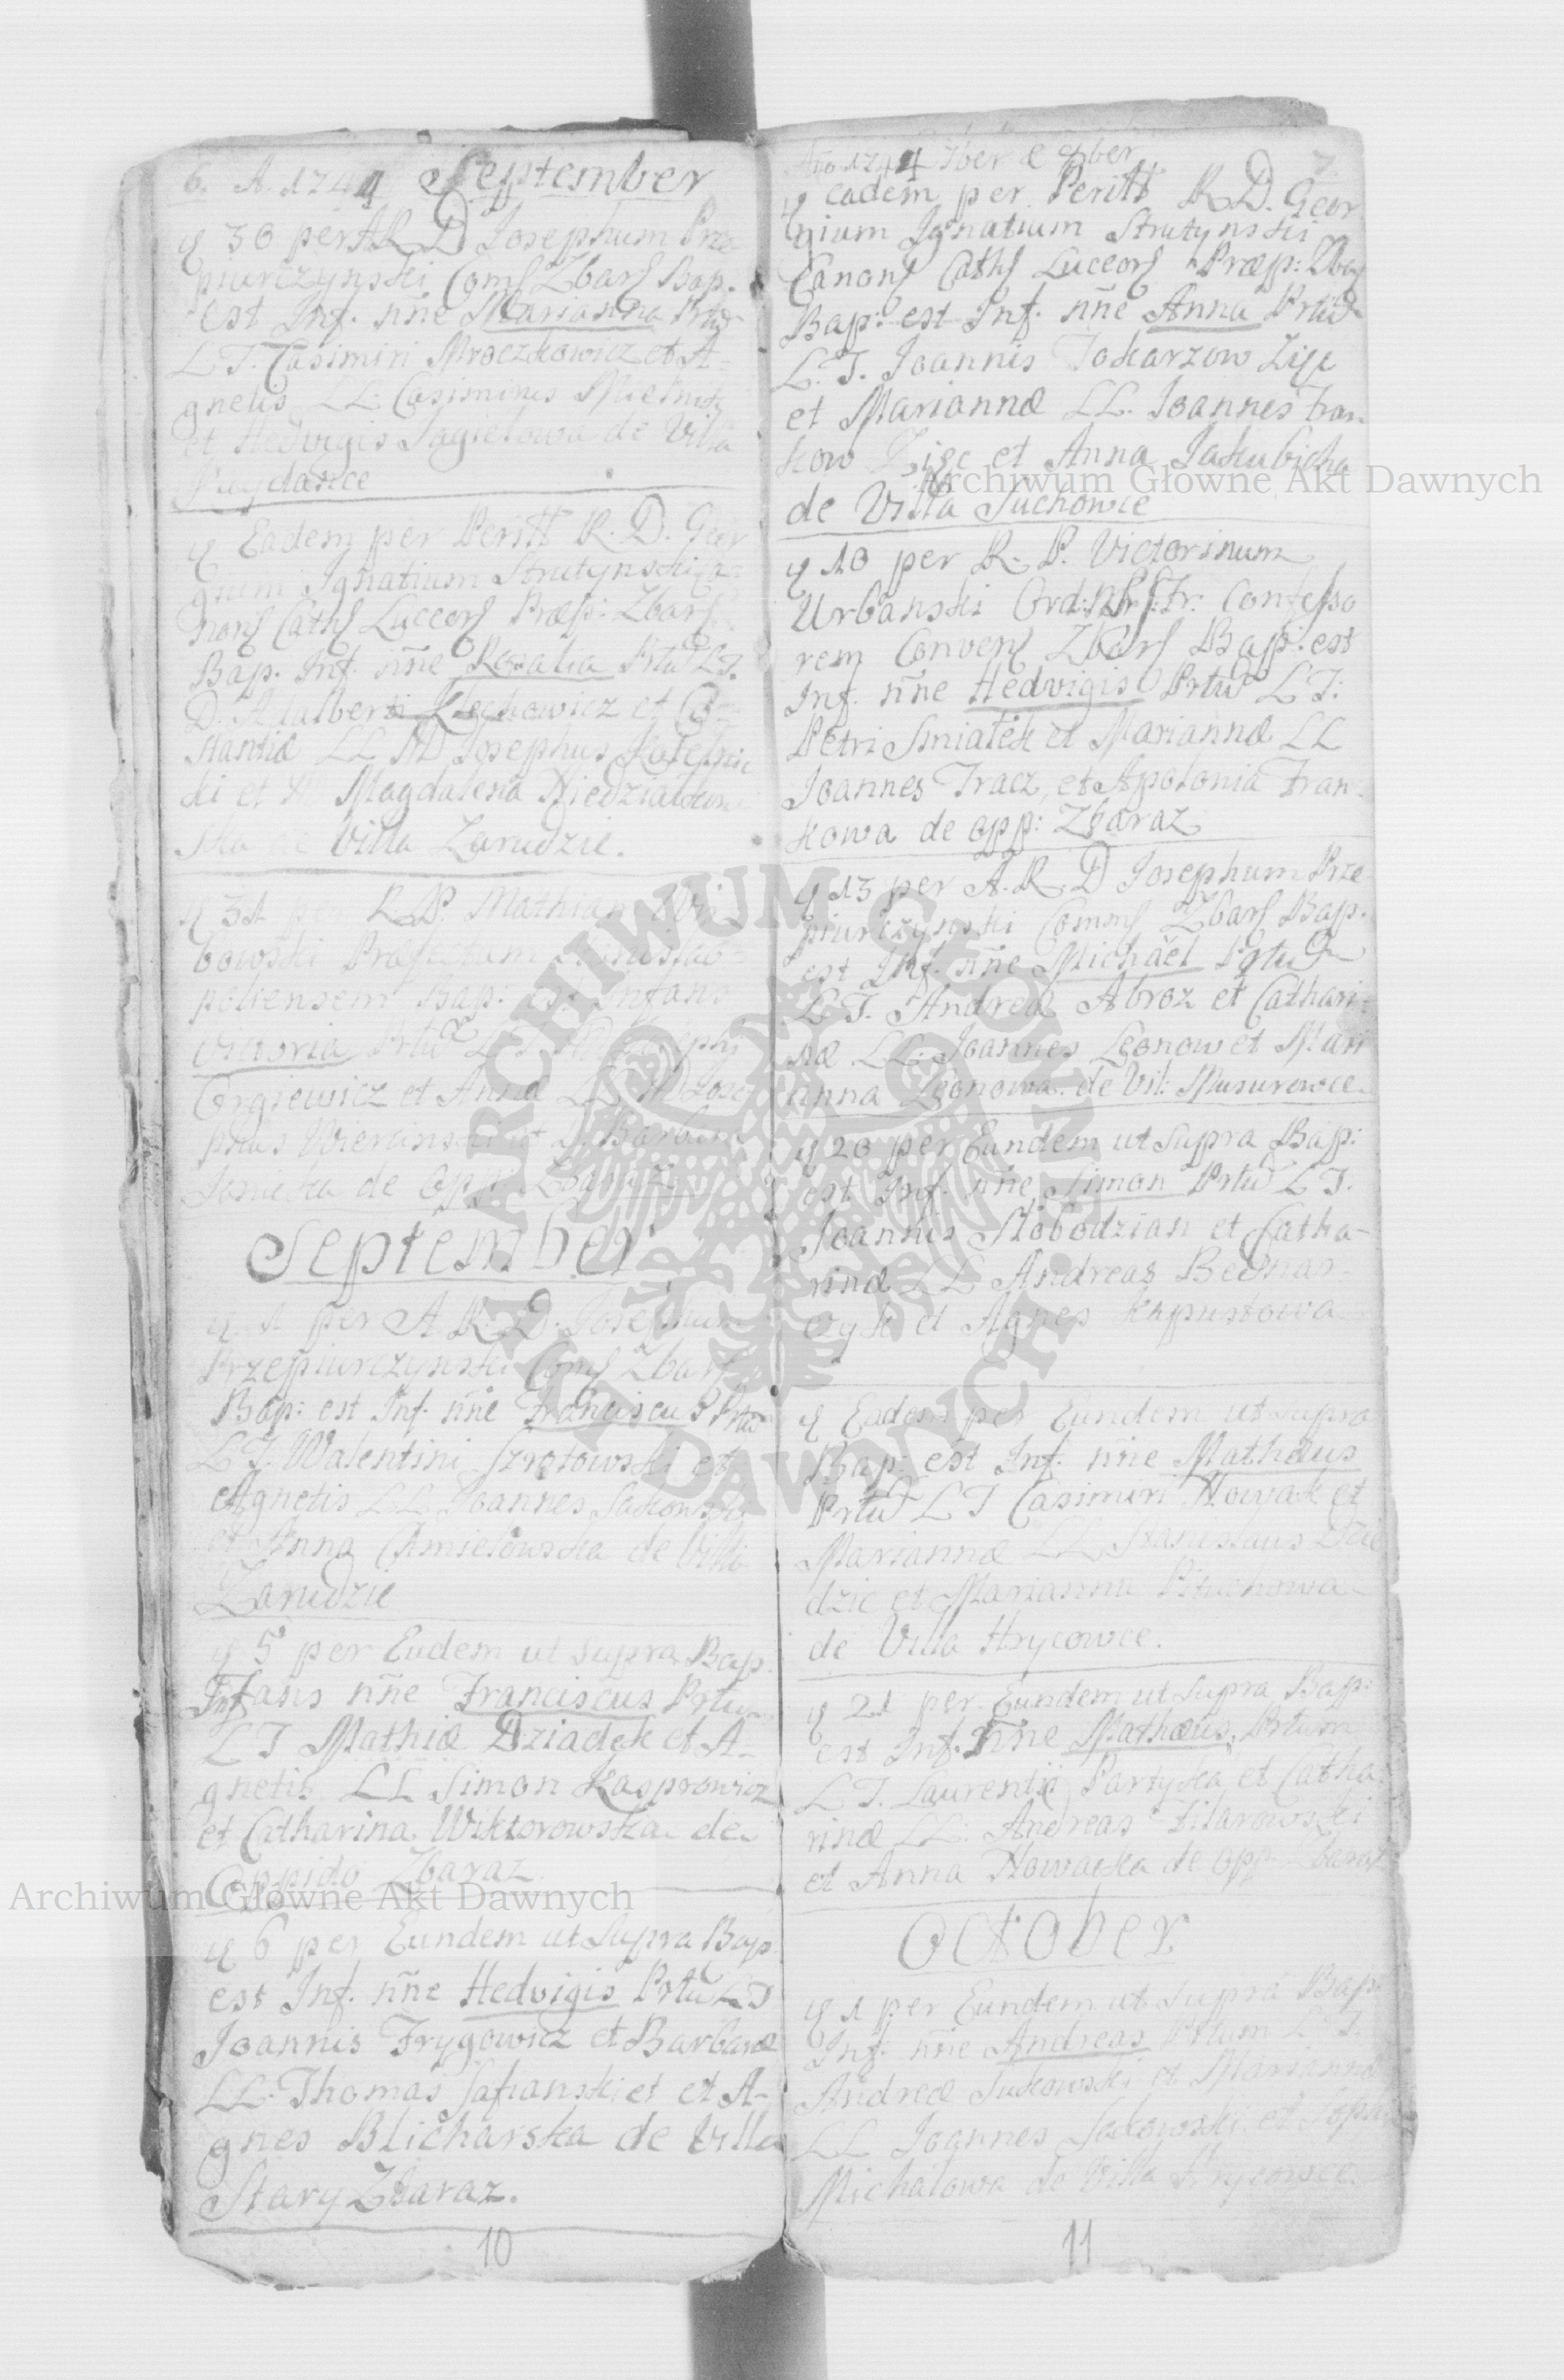 6. A. 1744 September
30 per A R D Josephum Prze
piurczynski Com Zbar Bap.
est Inf. nne Marianna Prtu
L T. Casimiri Mroczkowicz et A-
gnetis LL: Casimirus
et Hedvigis Jagielowa de Villa
Eadem per Peritt R. D. Geor
gium Ignatium Strutynski Ca=
non Cath Luceor Præp: Zbar
Bap. Inf. nne Rosalia Prtu LT.
D. Adalberti Klechowicz et Con
stantiæ LL M Josephus
ki et Magdalena
Villa Zarudzie.
31 per R. P. Mathiam
bowski Præfectum
poliensem Bap: est Infans
Victoria Prtu LT
et Annæ LL
phus et Barbara
de Opp: Zbaraz
September
1 per A. R. D. Josephum
Przepiurczynski Com Zbar
Bap: est Inf. nne Franciscus Prtu
L T. Walentini Szrotowski et
Agnetis LL Joannes
et Anna Chmielowska de Villa
Zarudzie
5 per Eudem ut supra Bap.
Infans nne Franciscus Prtu
L T Mathiæ Dziadek et A-
gnetis LL Simon Kasprowicz
et Catharina Wiktorowska de
Oppido Zbaraz
6 per Eundem ut supra Bap
est Inf. nne Hedvigis Prtu L T
Joannis Frygowicz et Barbaræ
LL. Thomas Safianski et et A-
gnes Blicharska de Villa
Stary Zbaraz.
10
Ano 1744 7ber e 8ber 7
eadem per Peritt R D. Geor
gium Ignatium Strutynski
Canon Cath Luceor Præp: Zbar
Bap: est Inf. nne Anna Prtu
L. T. Joannis Tokarzow Ziec
et Mariannæ LL. Joannes Fran
kow Ziec et Anna Jakubicha
de Villa Suchowce
10 per R. P. Victorinum
Urbanski Ord: Confesso
rem Conven Zbar Bap: est
Inf. nne Hedvigis Prtu L T:
Petri Smiałek et Mariannæ LL
Joannes Tracz, et Apolonia Fran
kowa de opp: Zbaraz
13 per A. R. D Josephum Prze
piurczynski Comm Zbar Bap.
est Inf. nne Michael Prtu
L T. Andreæ Abroz et Cathari
næ LL: Joannes Leonow et Mari
anna Leonowa de Vil: Musurowce
20 per Eundem ut supra Bap:
est Inf. nne Simon Prtu L T.
Joannis Slobodzian et Catha-
rinæ LL Andreas Bednar-
czyk et Agnes Kapustowa
Eadem per Eundem ut supra
Bap: est Inf. nne Mathæus
Prtu L T Casimiri Nowak et
Mariannæ LL Stanislaus Dzie
dzic et Marianna Pituchowa
de Villa Hrycowce.
21 per Eundem ut supra Bap:
est Inf. nne Mathæus, Prtum
L T. Laurentii Partyka et Catha
rinæ LL: Andreas Filarowski
et Anna Nowacka de opp Zbaraz
October
1 per Eundem ut supra Bap:
Inf. nne Andreas Prtum L T.
Andreæ Sukowski et Mariannæ
LL Joannes Sadowski et Sophia
Michalowa de Villa Hrycowce
11
Archiwum Głowne Akt Dawnych
Archiwum Głowne Akt Dawnych
ARCHIWUM GŁÓWNE
AKT DAWNYCH